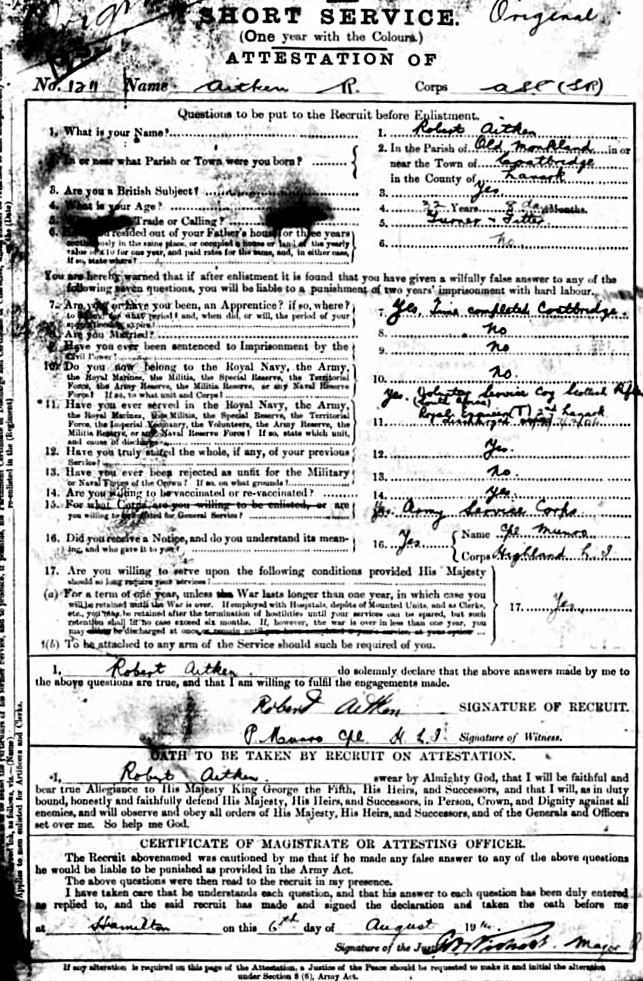 SHORT SERVICE. Original.
(One year with the Colours.)
ATTESTATION OF
No. Name Aitken R. Corps ASC (SR)
Questions to be put to the Recruit before Enlistment.
1. What is your Name? 1. Robert Aitken
2. In the Parish of Old Monkland in or
In or near what Parish or Town were you born? near the Town of Coatbridge
in the County of Lanark
3. Are you a British Subject? 3. Yes
4. What is your Age? 4. 32 Years 8 days Months.
5. Trade or Calling? 5. Turner & Fitter
6. resided out of your Father's house for three years
continuously in the same place, or occupied a house or land of the yearly
value of £10 for one year, and paid rates for the same, and, in either case,
if so, state where? 6. No.
You are hereby warned that if after enlistment it is found that you have given a wilfully false answer to any of the
following seven questions, you will be liable to a punishment of two years' imprisonment with hard labour.
7. Are you or have you been, an Apprentice? if so, where?
to what period? and, when did, or will, the period of your
apprenticeship expire? 7. Yes, Time completed Coatbridge.
8. Are you Married? 8. No
9. Have you ever been sentenced to Imprisonment by the
Civil Power? 9. No
10. Do you now belong to the Royal Navy, the Army,
the Royal Marines, the Militia, the Special Reserve, the Territorial
Force, the Army Reserve, the Militia Reserve, or any Naval Reserve
Force? If so, to what unit and Corps? 10. No.
*11. Have you ever served in the Royal Navy, the Army,
the Royal Marines, the Militia, the Special Reserve, the Territorial
Force, the Imperial Yeomanry, the Volunteers, the Army Reserve, the
Militia Reserve, or any Naval Reserve Force? If so, state which unit,
and cause of discharge 11. Yes. Volunteer Service Coy Scottish Rifles
(South Africa)
Royal Engineers (T) 2nd Lanark
12. Have you truly stated the whole, if any, of your previous
Service? 12. Yes.
13. Have you ever been rejected as unfit for the Military
or Naval Forces of the Crown? If so, on what grounds? 13. No.
14. Are you willing to be vaccinated or re-vaccinated? 14. Yes
15. For what Corps are you willing to be enlisted, or are
you willing to be enlisted for General Service? Yes. Army Service Corps
16. Did you receive a Notice, and do you understand its mean-
ing, and who gave it to you? 16. Yes Name Cpl Munro
Corps Highland L.I
17. Are you willing to serve upon the following conditions provided His Majesty
should so long require your services?
(a) For a term of one year, unless the War lasts longer than one year, in which case you
will be retained until the War is over. If employed with Hospitals, depôts of Mounted Units, and as Clerks,
etc., you may be retained after the termination of hostilities until your services can be spared, but such
retention shall in no case exceed six months. If, however, the war is over in less than one year, you
may either be discharged at once or remain until 17. Yes.
†(b) To be attached to any arm of the Service should such be required of you.
I, Robert Aitken do solemnly declare that the above answers made by me to
the above questions are true, and that I am willing to fulfil the engagements made.
Robert Aitken SIGNATURE OF RECRUIT.
P Munro Cpl H.L.I Signature of Witness.
OATH TO BE TAKEN BY RECRUIT ON ATTESTATION.
I, Robert Aitken. swear by Almighty God, that I will be faithful and
bear true Allegiance to His Majesty King George the Fifth, His Heirs, and Successors, and that I will, as in duty
bound, honestly and faithfully defend His Majesty, His Heirs, and Successors, in Person, Crown, and Dignity against all
enemies, and will observe and obey all orders of His Majesty, His Heirs, and Successors, and of the Generals and Officers
set over me. So help me God.
CERTIFICATE OF MAGISTRATE OR ATTESTING OFFICER.
The Recruit abovenamed was cautioned by me that if he made any false answer to any of the above questions
he would be liable to be punished as provided in the Army Act.
The above questions were then read to the recruit in my presence.
I have taken care that he understands each question, and that his answer to each question has been duly entered
as replied to, and the said recruit has made and signed the declaration and taken the oath before me
at Hamilton on this 6th day of August 19
Signature of the Justice Major
If any alteration is required on this page of the Attestation, a Justice of the Peace should be requested to make it and initial the alteration
under Section 8 (6), Army Act.